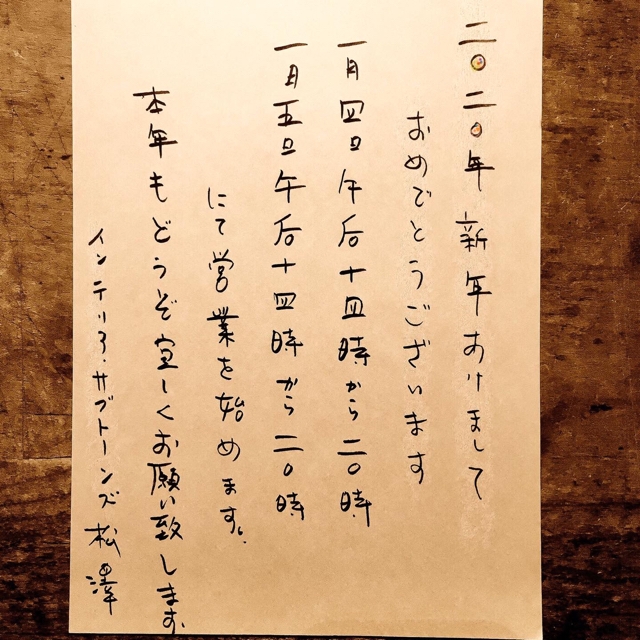 二〇二〇年 新年あけまして
おめでとうございます
一月四日午后十四時から二〇時
一月五日午后十四時から二〇時
にて営業を始めます。
本年もどうぞ宜しくお願い致します
インテリア・サブトーンズ 松澤